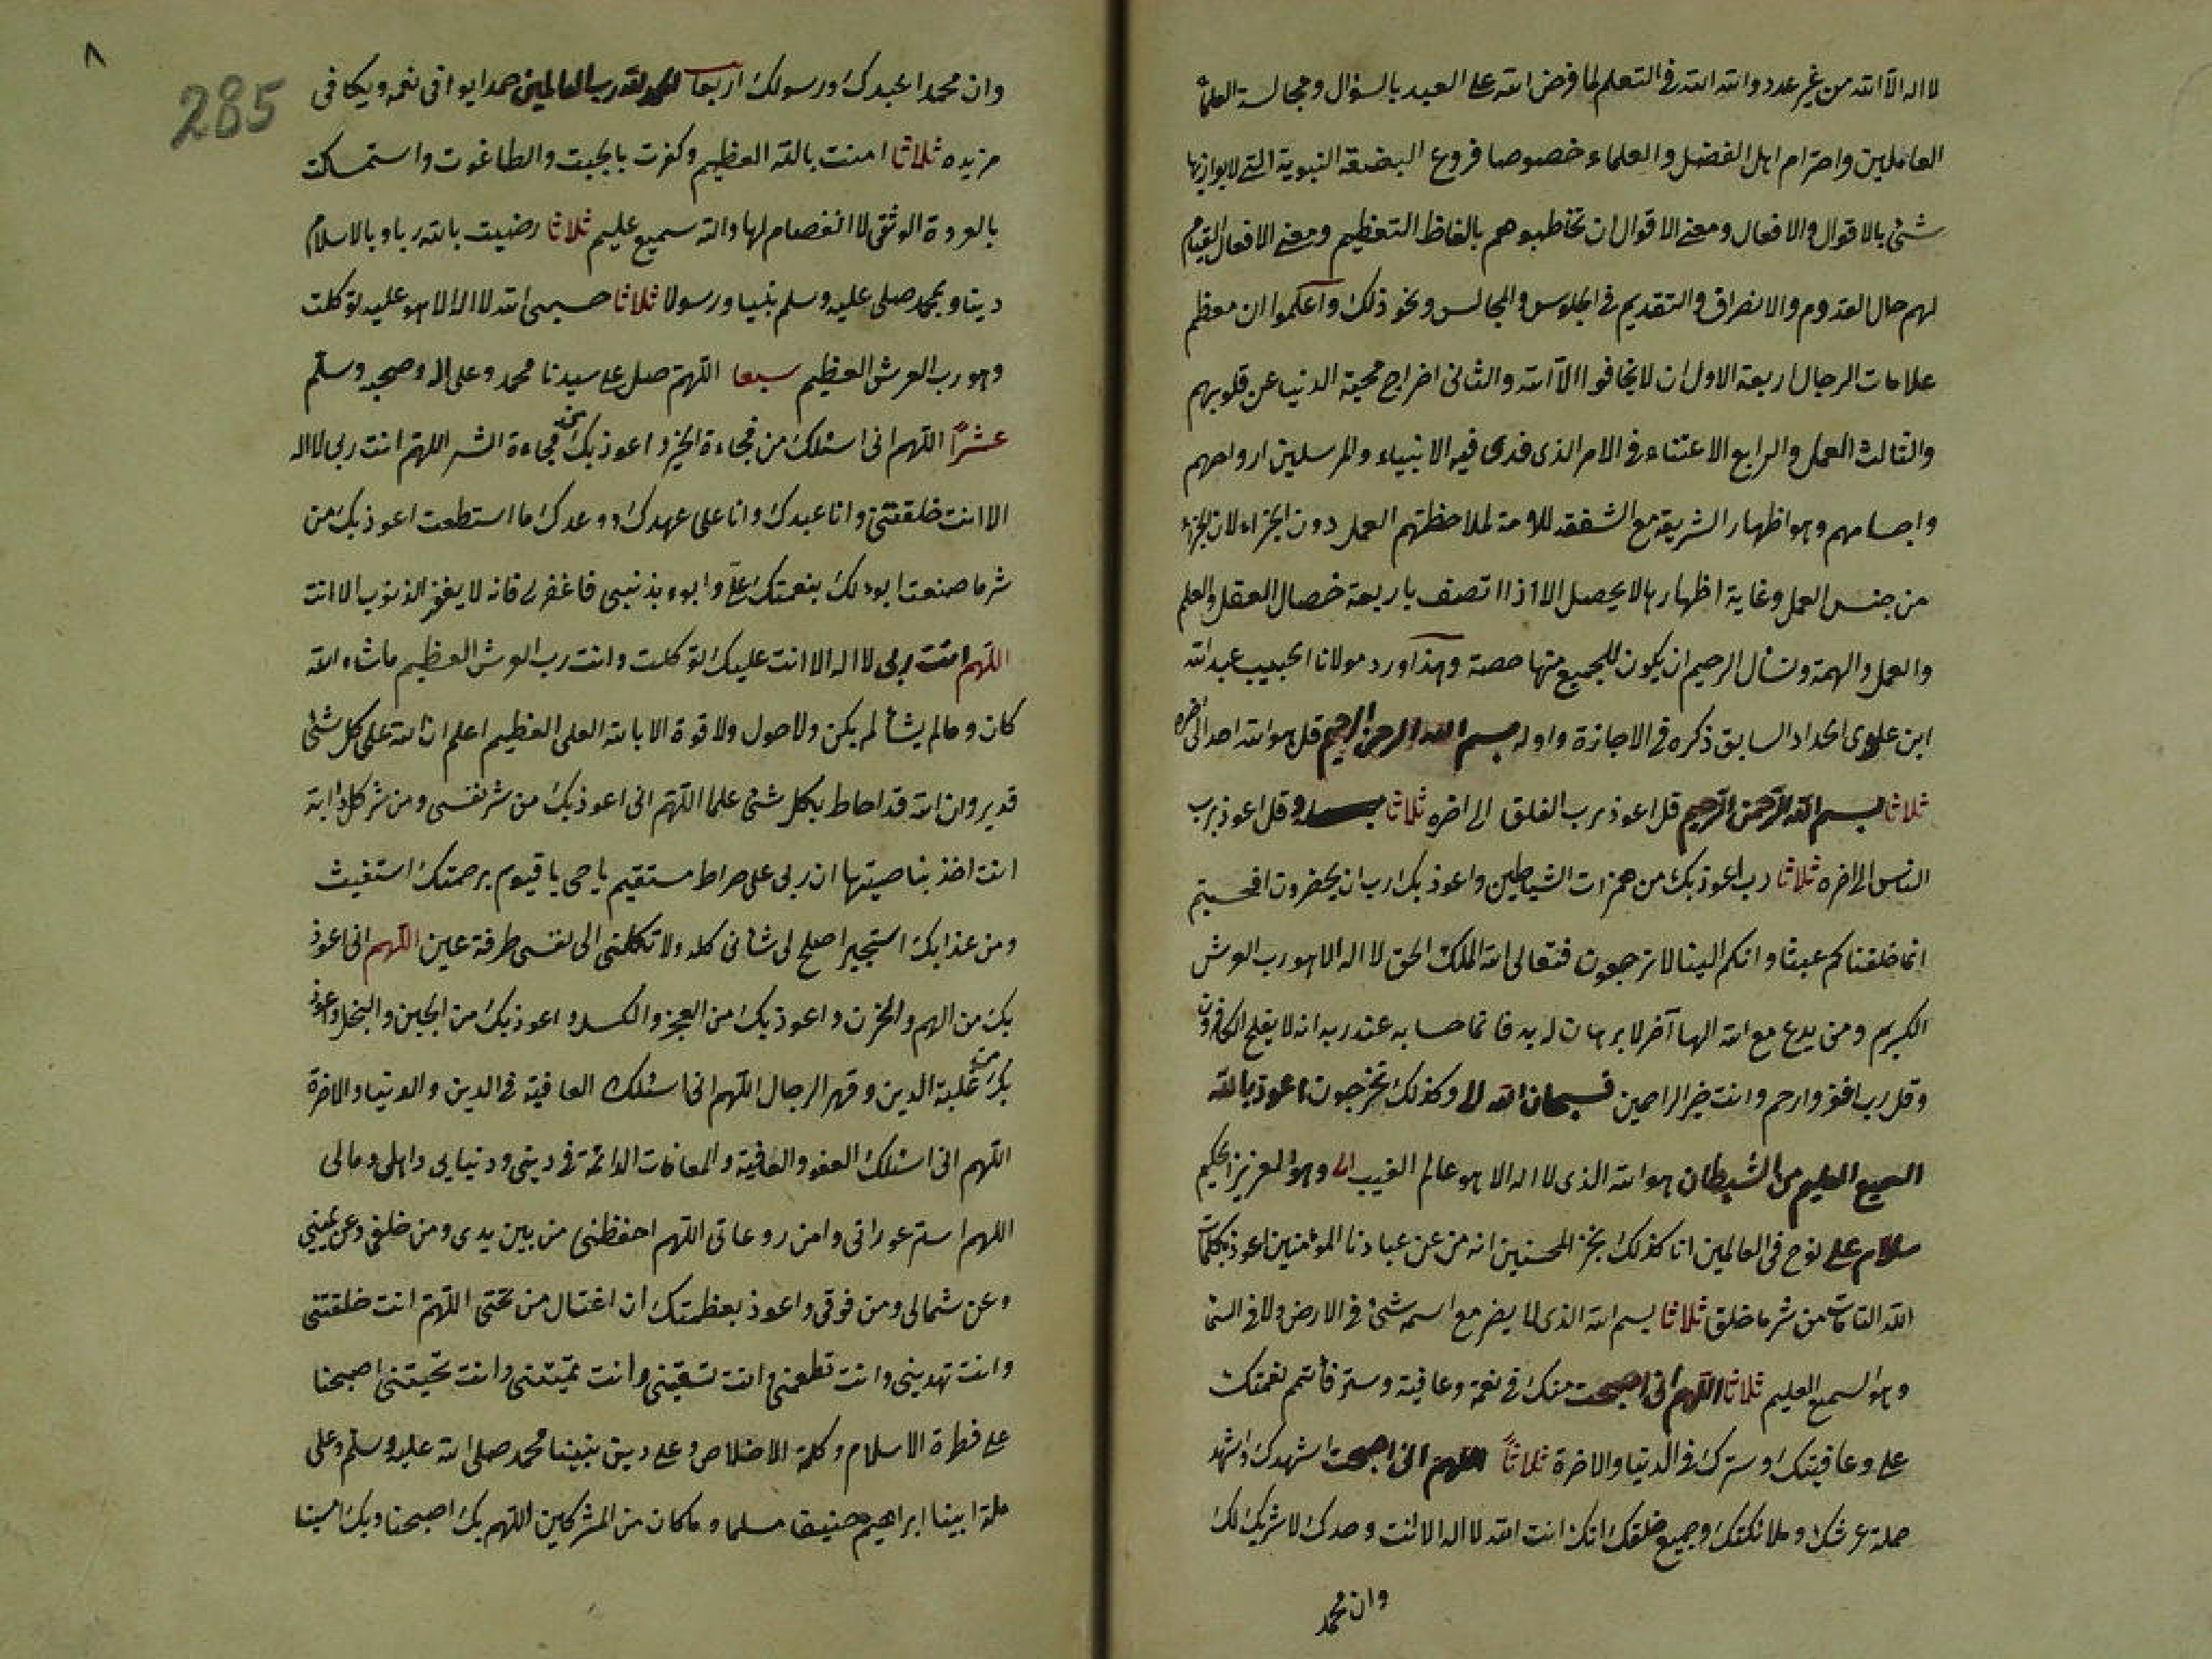 لا اله الا الله من غير عدد والله الله في التعلم لما فرض الله على العبد بالسؤال ومجالسة العلماء
العاملين واحترام اهل الفضل والعلماء خصوصا فروع البضعة النبوية التي لا يوازيها
شئ بالاقوال والافعال ومعنى الاقوال ان تخاطبوهم بالفاظ التعظيم ومعنى الافعال القيام
لهم حال القدوم والانصراف والتقديم في الجلوس والمجالس ونحو ذلك واعلموا ان معظم
علامات الرجال اربعة الاول ان لا يخافوا الا الله والثاني اخراج محبة الدنيا عن قلوبهم
والثالث العمل والرابع الاعتناء في الامر الذي فدى فيه الانبياء والمرسلين ارواحهم
واجسامهم وهو اظهار الشريعة مع الشفقة للامة لملاحظتهم العمل دون الجزاء لان الجزاء
من جنس العمل وغاية اظهارها لا يحصل الا اذا اتصف باربعة خصال العقل والعلم
والعمل والهمة ونسأل الرحيم ان يكون للجميع منها حصة وهذا ورد مولانا الحبيب عبد الله
ابن علوي الحداد السابق ذكره في الاجازة واوله بسم الله الرحمن الرحيم قل هو الله احد الى اخره
ثلاثا بسم الله الرحمن الرحيم قل اعوذ برب الفلق الى اخره ثلاثا بسم وقل اعوذ برب
الناس الى اخره ثلاثا رب اعوذ بك من همزات الشياطين واعوذ بك رب ان يحضرون افحسبتم
انما خلقناكم عبثا وانكم الينا لا ترجعون فتعالى الله الملك الحق لا اله الا هو رب العرش
الكريم ومن يدع مع الله الها آخر لا برهان له به فانما حسابه عند ربه انه لا يفلح الكافرون
وقل رب اغفر وارحم وانت خير الراحمين فسبحان الله الى وكذلك تخرجون اعوذ بالله
السميع العليم من الشيطان هو الله الذي لا اله الا هو عالم الغيب الى وهو العزيز الحكيم
سلام على نوح في العالمين انا كذلك نجز المحسنين انه من عبادنا المؤمنين اعوذ بكلمات
الله التامات من شر ما خلق ثلاثا بسم الله الذي لا يضر مع اسمه شئ في الارض ولا في السماء
وهو السميع العليم ثلاثا اللهم اني اصبحت منك في نعمة وعافية وستر فأتمم نعمتك
على وعافيتك وسترك في الدنيا والاخرة ثلاثاً اللهم اني اصبحت اشهدك واشهد
حملة عرشك وملائكتك وجميع خلقك انك انت الله لا اله الا انت وحدك لا شريك لك
وان محمد
٨
285
وان محمدا عبدك ورسولك اربعا الحمد لله رب العالمين حمدا يوافي نعمه ويكافي
مزيده ثلاثا امنت بالله العظيم وكفرت بالجبت والطاغوت واستمسكت
بالعروة الوثقى لا انفصام لها والله سميع عليم ثلاثا رضيت بالله ربا وبالاسلام
دينا وبمحمد صلى عليه وسلم نبيا ورسولا ثلاثا حسبي الله لا اله الا هو عليه توكلت
وهو رب العرش العظيم سبعا اللهم صل على سيدنا محمد وعلى اله وصحبه وسلم
عشراً اللهم اني اسئلك من فجاءة الخير واعوذ بك من فجاءة الشر اللهم انت ربي لا اله
الا انت خلقتني وانا عبدك وانا على عهدك ووعدك ما استطعت اعوذ بك من
شر ما صنعت ابوء لك بنعمتك علي وابوء بذنبي فاغفر لي فانه لا يغفر الذنوب الا انت
اللهم انت ربي لا اله الا انت عليك توكلت وانت رب العرش العظيم ماشاء الله
كان وما لم يشأ لم يكن ولا حول ولا قوة الا بالله العلي العظيم اعلم ان الله على كل شئ
قدير وان الله قد احاط بكل شئ علما اللهم اني اعوذ بك من شر نفسي ومن شر كل دابة
انت اخذ بناصيتها ان ربي على صراط مستقيم يا حي يا قيوم برحمتك استغيث
ومن عذابك استجير اصلح لي شاني كله ولا تكلني الى نفسي طرفة عين اللهم اني اعوذ
بك من الهم والحزن واعوذ بك من العجز والكسل واعوذ بك من الجبن والبخل واعوذ
بك من غلبة الدين وقهر الرجال اللهم اني اسئلك العافية في الدين والدنيا والاخرة
اللهم اني اسئلك العفو والعافية والمعافات الدائمة في ديني ودنيايي واهلي ومالي
اللهم استر عوراتي وامن روعاتي اللهم احفظني من بين يدي ومن خلفي وعن يميني
وعن شمالي ومن فوقي واعوذ بعظمتك ان اغتال من تحتي اللهم انت خلقتني
وانت تهديني وانت تطعمني وانت تسقيني وانت تميتني وانت تحييني اصبحنا
على فطرة الاسلام وكلمة الاخلاص وعلى دين نبينا محمد صلى الله عليه وسلم وعلى
ملة ابينا ابراهيم حنيفا مسلما وماكان من المشركين اللهم بك اصبحنا وبك امسينا